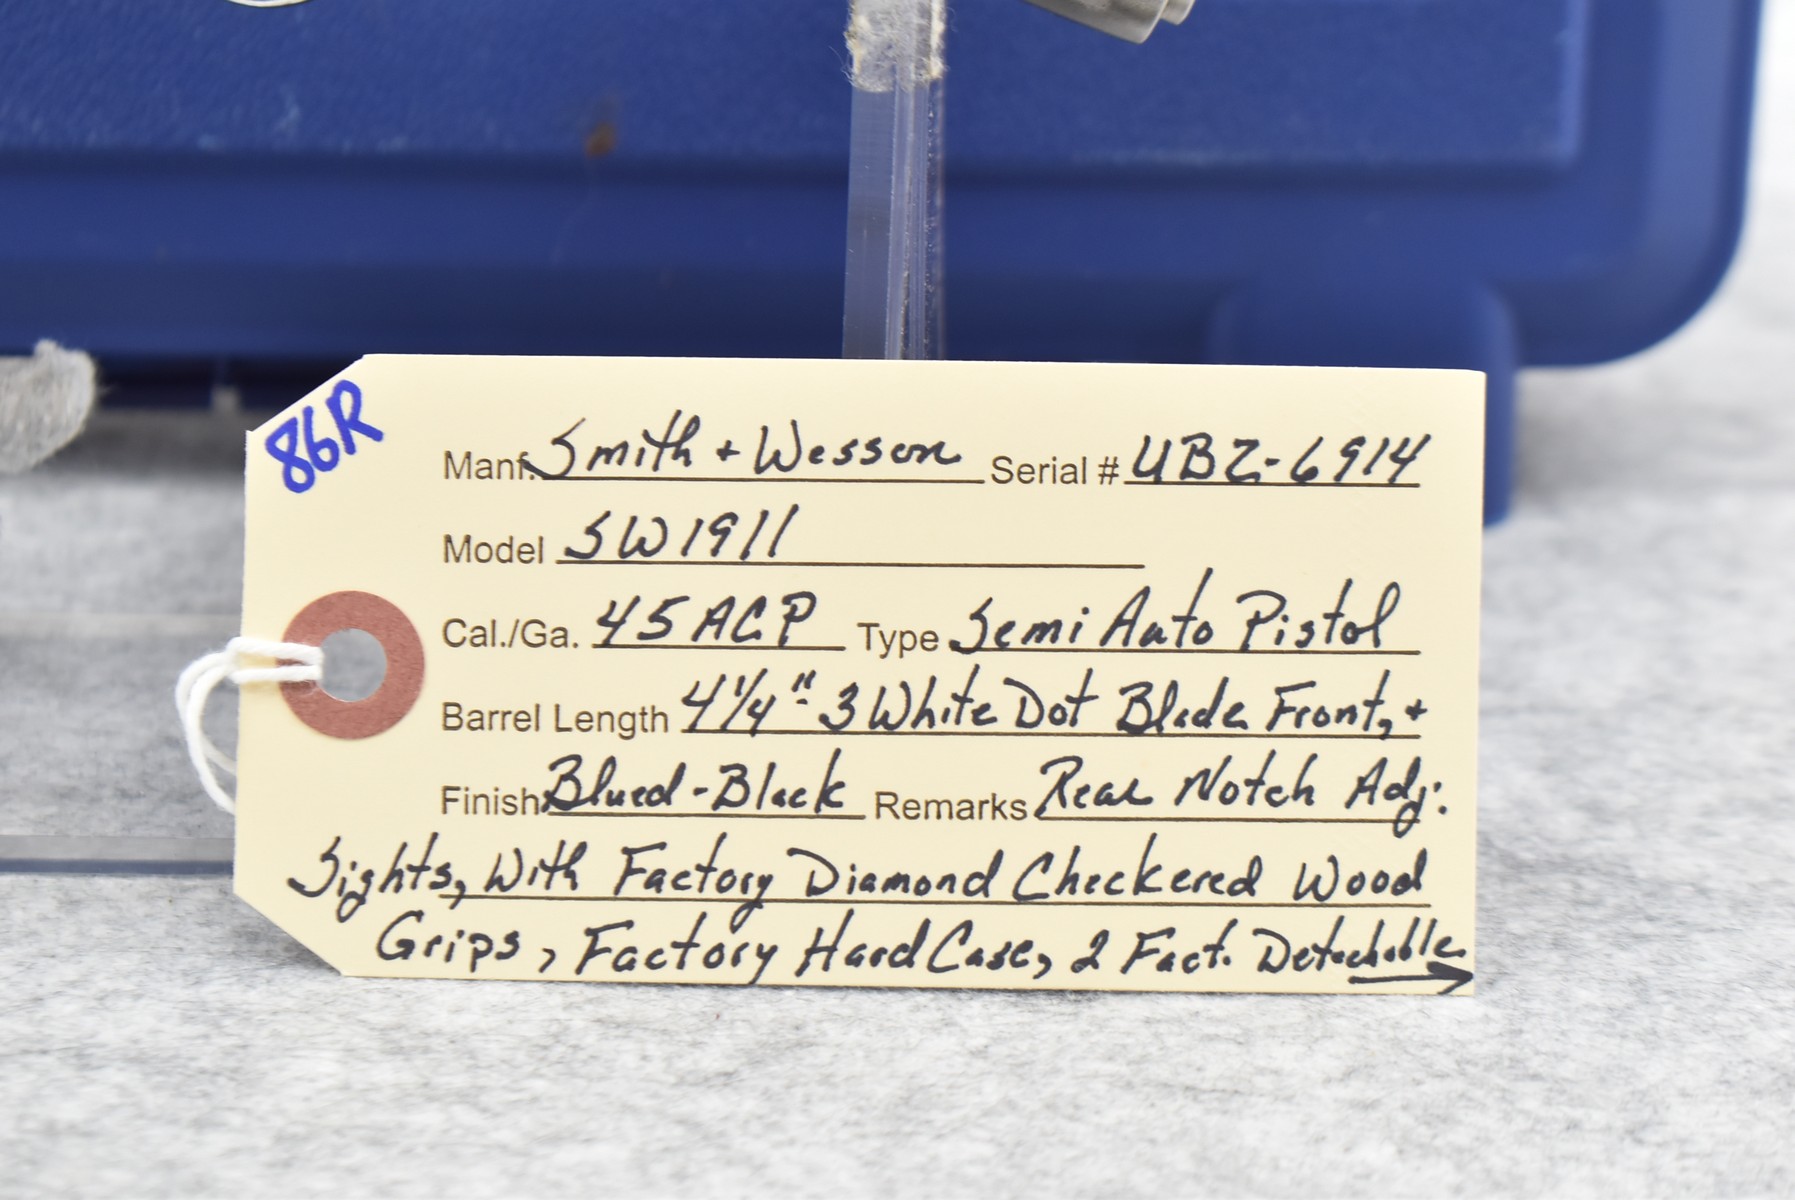 86R
Manf. Smith + Wesson Serial # UBZ-6914
Model SW1911
Cal./Ga. 45 ACP Type Semi Auto Pistol
Barrel Length 4 1/4" 3 White Dot Blade Front, +
Finish Blued-Black Remarks Rear Notch Adj.
Sights, With Factory Diamond Checkered Wood
Grips, Factory Hard Case, 2 Fact. Detachable →